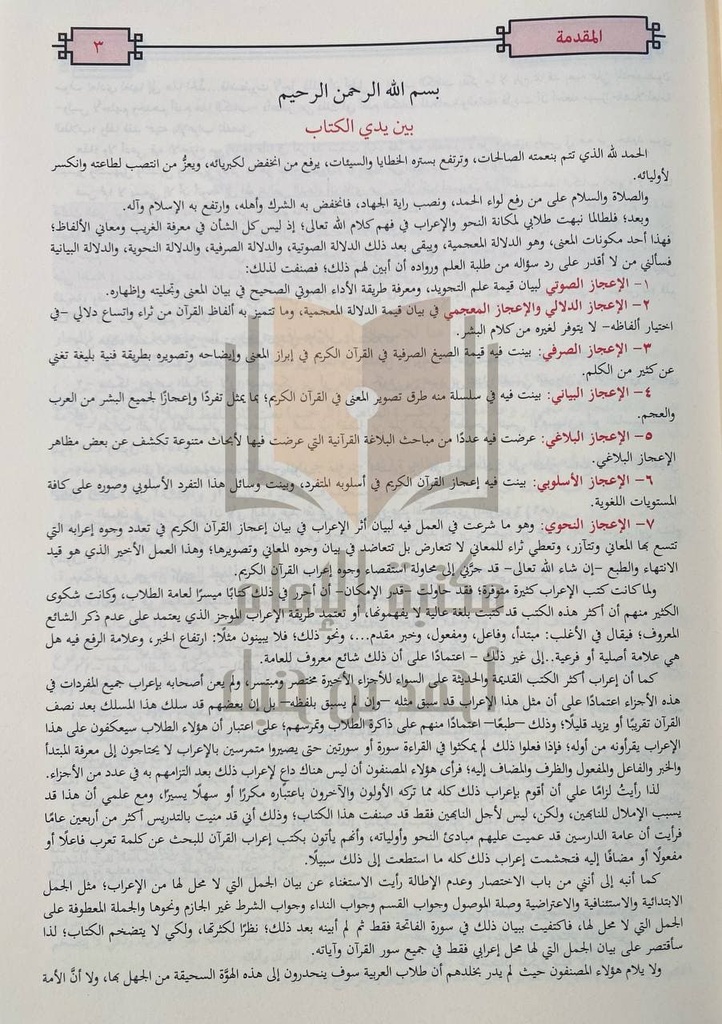 المقدمة
٣
بسم الله الرحمن الرحيم
بين يدي الكتاب
الحمد لله الذي تتم بنعمته الصالحات، وترتفع بستره الخطايا والسيئات، يرفع من انخفض لكبريائه، ويعزُّ من انتصب لطاعته وانكسر
لأوليائه.
والصلاة والسلام على من رفع لواء الحمد، ونصب راية الجهاد، فانخفض به الشرك وأهله، وارتفع به الإسلام وآله.
وبعد؛ فلطالما نبهت طلابي لمكانة النحو والإعراب في فهم كلام الله تعالى؛ إذ ليس كل الشأن في معرفة الغريب ومعاني الألفاظ؛
فهذا أحد مكونات المعنى، وهو الدلالة المعجمية، ويبقى بعد ذلك الدلالة الصوتية، والدلالة الصرفية، والدلالة النحوية، والدلالة البيانية
فسألني من لا أقدر على رد سؤاله من طلبة العلم ورواده أن أبين لهم ذلك؛ فصنفت لذلك:
١- الإعجاز الصوتي لبيان قيمة علم التجويد، ومعرفة طريقة الأداء الصوتي الصحيح في بيان المعنى وتجليته وإظهاره.
٢- الإعجاز الدلالي والإعجاز المعجمي في بيان قيمة الدلالة المعجمية، وما تتميز به ألفاظ القرآن من ثراء واتساع دلالي -في
اختيار ألفاظه- لا يتوفر لغيره من كلام البشر.
٣- الإعجاز الصرفي: بينت فيه قيمة الصيغ الصرفية في القرآن الكريم في إبراز المعنى وإيضاحه وتصويره بطريقة فنية بليغة تغني
عن كثير من الكلم.
٤- الإعجاز البياني: بينت فيه في سلسلة منه طرق تصوير المعنى في القرآن الكريم؛ بما يمثل تفردًا وإعجازًا لجميع البشر من العرب
والعجم.
٥- الإعجاز البلاغي: عرضت فيه عددًا من مباحث البلاغة القرآنية التي عرضت فيها لأبحاث متنوعة تكشف عن بعض مظاهر
الإعجاز البلاغي.
٦- الإعجاز الأسلوبي: بينت فيه إعجاز القرآن الكريم في أسلوبه المتفرد، وبينت وسائل هذا التفرد الأسلوبي وصوره على كافة
المستويات اللغوية.
٧- الإعجاز النحوي: وهو ما شرعت في العمل فيه لبيان أثر الإعراب في بيان إعجاز القرآن الكريم في تعدد وجوه إعرابه التي
تتسع بها المعاني وتتآزر، وتعطي ثراء للمعاني لا تتعارض بل تتعاضد في بيان وجوه المعاني وتصويرها؛ وهذا العمل الأخير الذي هو قيد
الانتهاء والطبع -إن شاء الله تعالى- قد جرَّني إلى محاولة استقصاء وجوه إعراب القرآن الكريم.
ولما كانت كتب الإعراب كثيرة متوفرة؛ فقد حاولت -قدر الإمكان- أن أحرر في ذلك كتابًا ميسرًا لعامة الطلاب، وكانت شكوى
الكثير منهم أن أكثر هذه الكتب قد كتبت بلغة عالية لا يفهمونها، أو تعتمد طريقة الإعراب الموجز الذي يعتمد على عدم ذكر الشائع
المعروف؛ فيقال في الأغلب: مبتدأ، وفاعل، ومفعول، وخبر مقدم...، ونحو ذلك؛ فلا يبينون مثلًا: ارتفاع الخبر، وعلامة الرفع فيه هل
هي علامة أصلية أو فرعية..إلى غير ذلك - اعتمادًا على أن ذلك شائع معروف للعامة.
كما أن إعراب أكثر الكتب القديمة والحديثة على السواء للأجزاء الأخيرة مختصر ومبتسر، ولم يعن أصحابه بإعراب جميع المفردات في
هذه الأجزاء اعتمادًا على أن مثل هذا الإعراب قد سبق مثله -وإن لم يسبق بلفظه- بل إن بعضهم قد سلك هذا المسلك بعد نصف
القرآن تقريبًا أو يزيد قليلًا؛ وذلك -طبعًا- اعتمادًا منهم على ذاكرة الطلاب وتمرسهم؛ على اعتبار أن هؤلاء الطلاب سيعكفون على هذا
الإعراب يقرأونه من أوله؛ فإذا فعلوا ذلك لم يمكثوا في القراءة سورة أو سورتين حتى يصيروا متمرسين بالإعراب لا يحتاجون إلى معرفة المبتدأ
والخبر والفاعل والمفعول والظرف والمضاف إليه؛ فرأى هؤلاء المصنفون أن ليس هناك داعٍ لإعراب ذلك بعد التزامهم به في عدد من الأجزاء.
لذا رأيتُ لزامًا علي أن أقوم بإعراب ذلك كله مما تركه الأولون والآخرون باعتباره مكررًا أو سهلًا يسيرًا، ومع علمي أن هذا قد
يسبب الإملال للنابهين، ولكن، ليس لأجل النابهين فقط قد صنفت هذا الكتاب؛ وذلك أني قد منيت بالتدريس أكثر من أربعين عامًا
فرأيت أن عامة الدارسين قد عميت عليهم مبادئ النحو وأولياته، وأنهم يأتون بكتب إعراب القرآن للبحث عن كلمة تعرب فاعلًا أو
مفعولًا أو مضافًا إليه فتجشمت إعراب ذلك كله ما استطعت إلى ذلك سبيلًا.
كما أنبه إلى أنني من باب الاختصار وعدم الإطالة رأيت الاستغناء عن بيان الجمل التي لا محل لها من الإعراب؛ مثل الجمل
الابتدائية والاستئنافية والاعتراضية وصلة الموصول وجواب القسم وجواب النداء وجواب الشرط غير الجازم ونحوها والجملة المعطوفة على
الجمل التي لا محل لها، فاكتفيت ببيان ذلك في سورة الفاتحة فقط ثم لم أبينه بعد ذلك؛ نظرًا لكثرتها، ولكي لا يتضخم الكتاب؛ لذا
سأقتصر على بيان الجمل التي لها محل إعرابي فقط في جميع سور القرآن وآياته.
ولا يلام هؤلاء المصنفون حيث لم يدر بخلدهم أن طلاب العربية سوف ينحدرون إلى هذه الهوَّة السحيقة من الجهل بها، ولا أنَّ الأمة